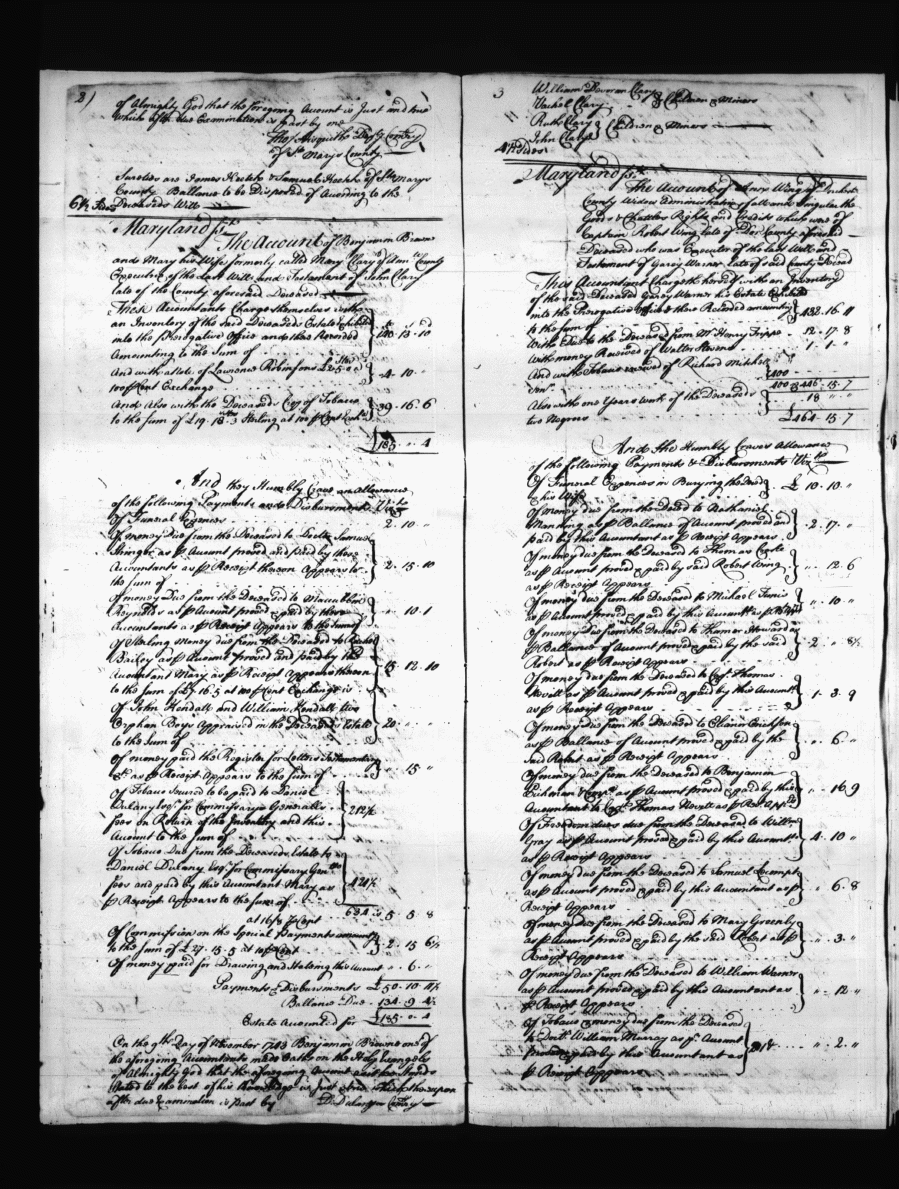 2)
of Almighty God that the foregoing Account is Just and true
which after due Examination is past by me
Dep.ty Com.ry
of S.t Mary's County
Sureties are James & Samuel of S.t Marys
County Ballance to be Disposed of According to the
6 1/2 Sides Deceaseds Will
Maryland ss.t
The Account of Benjamin Browne
and Mary his Wife formerly called Mary Clary of Ann County
Executrix of the Last Will and Testament of John Clary
late of the County aforesaid Deceased
These Accountants Charge themselves with
an Inventory of the said Deceaseds Estate Exhibited
into the Prerogative Office and there Recorded
Amounting to the Sum of 13 . 10
And with a Note of Lawrence Robinsons
100 p Cent Exchange 4 . 10 . "
And Also with the Deceaseds Crop of Tobacco
to the sum of £19 . 18 . 3 Sterling at 100 p Cent Exch.a 39 . 16 . 6
£185 . " . 4
And they Humbly Crave an Allowance
of the following Payments and Disbursments Viz.t
Of Funeral Expences 2 . 10 . "
Of Money Due from the Deceased to Doctor Samuel
Stringer as p Account proved and paid by these
Accountants as p Receipt thereon Appears to
the Sum of 2 . 15 . 10
Of money Due from the Deceased to
Reynolds as p Account proved & paid by these
Accountants as p Receipt Appears to the Sum of " . 10 . 1
Of Sterling Money due from the Deceased to
Bailey as p Account proved and paid by the
Accountant Mary as p Receipt Appears thereon
to the Sum of £7 . 16 . 5 at 100 p Cent Exchange is 15 . 12 . 10
Of John Kendall and William Kendall two
Orphan Boys Appraised in the Deceaseds Estate
to the Sum of 20 . " . "
Of money paid the Register for Letters Testamentary
&c as p Receipt Appears to the Sum of " . 15 . "
Of Tobacco Secured to be paid to Daniel
Dulany Esq.r for Commissary Generalls
fees on Return of the Inventory and this
Account to the Sum of 212 1/2
Of Tobacco Due from the Deceaseds Estate to
Daniel Dulany Esq.r for Commissary Gen.lls
fees and paid by this Accountant Mary as
p Receipt Appears to the Sum of 421 1/2
634 is 5 . 5 . 8
at 16/8 p Cent
Of Commission on the Special Payments amount.g
to the Sum of £27 . 15 . 5 at 10 p Cent 2 . 15 . 6 1/2
Of money paid for Drawing and Stating this Account " . 6 . "
Payments & Disbursments £50 . 10 . 11 1/2
Ballance Due 134 . 9 . 4 1/2
Estate Accounted for £185 . " . 4
On the 9th Day of November 1743 Benjamin Browne one of
the aforegoing Accountants made Oath on the Holy Evangels
of Almighty God that the aforegoing Account as it now stands
Stated to the best of his Knowledge is Just & true
after due Examination is past by D: Dulany Com.ry
3
William Dawson Clary
Vachel Clary
Children & Minors
Ruth Clary
John Clary
Children & Minors
4 1/2 Sides
Maryland ss.t
The Account of Wing of Dorchest.r
County Widow Administratrix of all and Singular the
Goods & Chattles Rights and Credits which was of
Captain Robert Wing late of Dor: County aforesaid
Deceased who was Executor of the Last Will and
Testament of Garey Warner late of said County Deced
This Accountant Chargeth herself with an Inventory
of the said Deceased Garey Warner his Estate Exhibited
into the Prerogative Office & there Recorded amounting
to the Sum of 432 . 16 . 11
With Due to the Deceased from Mr Henry Trippe 12 . 17 . 8
With money Received of Walter Stevens 1 . 1 . "
And with Tobacco received of Richard Mitchel
Sen.r 400
400 & 446 . 15 . 7
Also with one Years work of the Deceaseds
two Negroes 18 . " . "
£464 . 15 . 7
And the Humbly Craves Allowance
of the following Payments & Disbursments Viz.t
Of Funeral Expences in Burying the Deced
& his Wife £10 . 10 . "
Of Money due from the Deced to Nathaniel
Manning as p Ballance of Account proved and
paid by this Accountant as p Receipt Appears 2 . 17 . "
Of money due from the Deceased to Thomas Cooke
as p Account proved & paid by said Robert Wing
as p Receipt Appears " . 12 . 6
Of money due from the Deceased to Michael
as p Account proved & paid by this Accountt as p Receipt " . 10 . "
Of money due from the Deceased to Thomas Howard as
p Ballance of Account proved & paid by the said
Robert as p Receipt Appears 2 . " . 8 1/2
Of money due from the Deceased to Cap.t Thomas
Nevill as p Account proved & paid by this Account.t
as p Receipt Appears 1 . 3 . 9
Of money due from the Deceased to Erickson
as p Ballance of Account proved & paid by the
said Robert as p Receipt Appears " . 6 . "
Of money due from the Deceased to Benjamin
& Comp.y as p Account proved & paid by this
Accountant to Cap.t Thomas Nevill as p Rec.t App.rs " . 16 . 9
Of Freedom dues due from the Deceased to Will.m
Gray as p Account proved & paid by this Account.t
as p Receipt Appears 4 . 10 . "
Of money due from the Deceased to Samuel
as p Account proved & paid by this Accountant as p
Receipt Appears " . 6 . 8
Of money due from the Deceased to Mary Greenly
as p Account proved & paid by the said Robert as p
Receipt Appears " . 3 . "
Of money due from the Deceased to William Warner
as p Account proved & paid by this Accountant as
p Receipt Appears " . 12 . "
Of Tobacco & money due from the Deceased
to Doct.r William Murray as p Account
proved & paid by this Accountant as
p Receipt Appears " . 2 . "